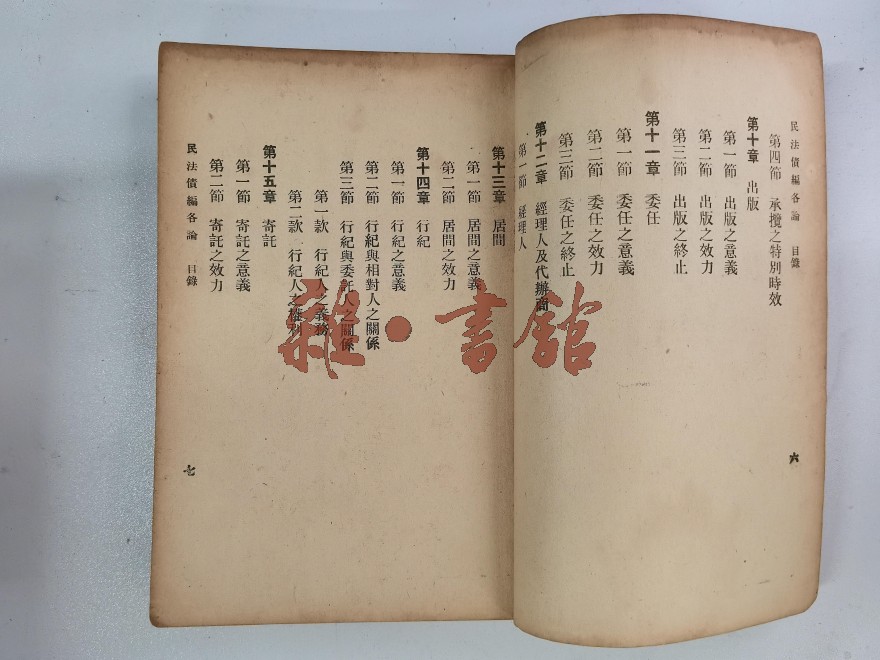 民法債編各論 目錄
第四節 承攬之特別時效
第十章 出版
第一節 出版之意義
第二節 出版之效力
第三節 出版之終止
第十一章 委任
第一節 委任之意義
第二節 委任之效力
第三節 委任之終止
第十二章 經理人及代辦商
第一節 經理人
六
第十三章 居間
第一節 居間之意義
第二節 居間之效力
第十四章 行紀
第一節 行紀之意義
第二節 行紀與相對人之關係
第三節 行紀與委託人之關係
第一款 行紀人之義務
第二款 行紀人之權利
第十五章 寄託
第一節 寄託之意義
第二節 寄託之效力
民法債編各論 目錄
七
雜·書館